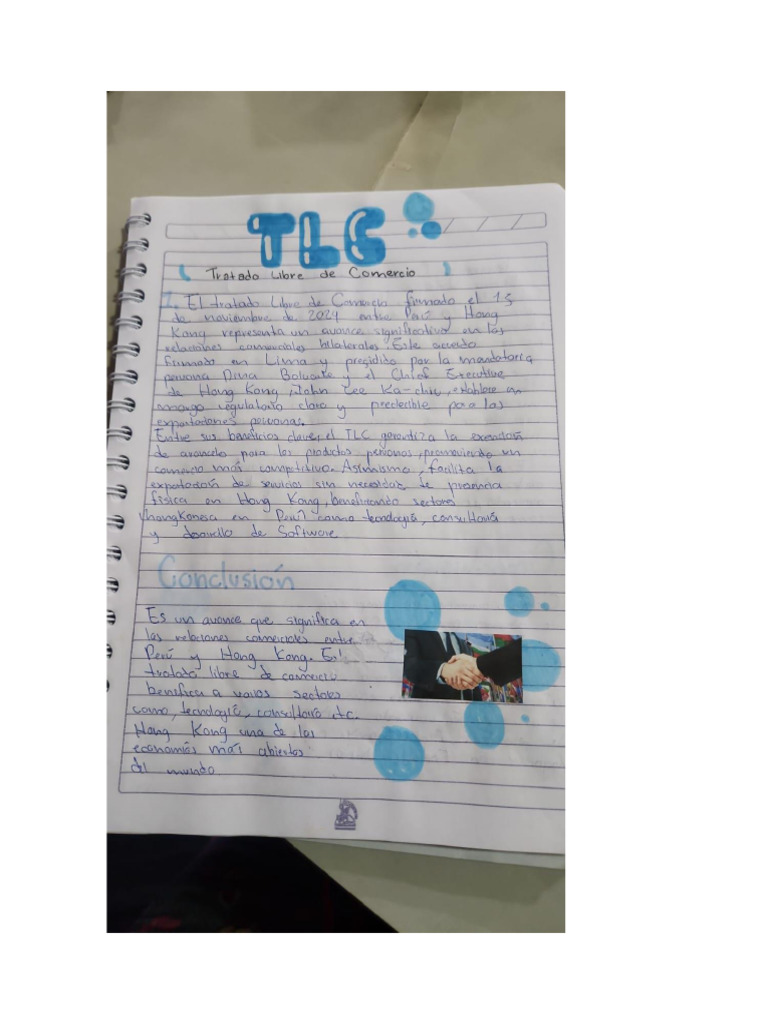 TLC
Tratado Libre de Comercio
1. El tratado Libre de Comercio firmado el 13
de noviembre de 2024 entre Perú y Hong
Kong representa un avance significativo en las
relaciones comerciales bilaterales. Este acuerdo
firmado en Lima y presidido por la mandataria
peruana Dina Boluarte y el Chief Executive
de Hong Kong, John Lee Ka-chiu, establece un
marco regulatorio claro y predecible para las
exportaciones peruanas.
Entre sus beneficios clave, el TLC garantiza la exención
de aranceles para los productos peruanos, promoviendo un
comercio más competitivo. Asimismo, facilita la
exportación de servicios sin necesidad de presencia
física en Hong Kong, beneficiando sectores
hongKonesa en Perú como tecnología, consultoría
y desarrollo de Software.
Conclusión
Es un avance que significa en
las relaciones comerciales entre
Perú y Hong Kong. El
tratado libre de comercio
benifica a varios sectores
como, tecnología, consultoria etc.
Hong Kong una de las
economías más abiertas
del mundo